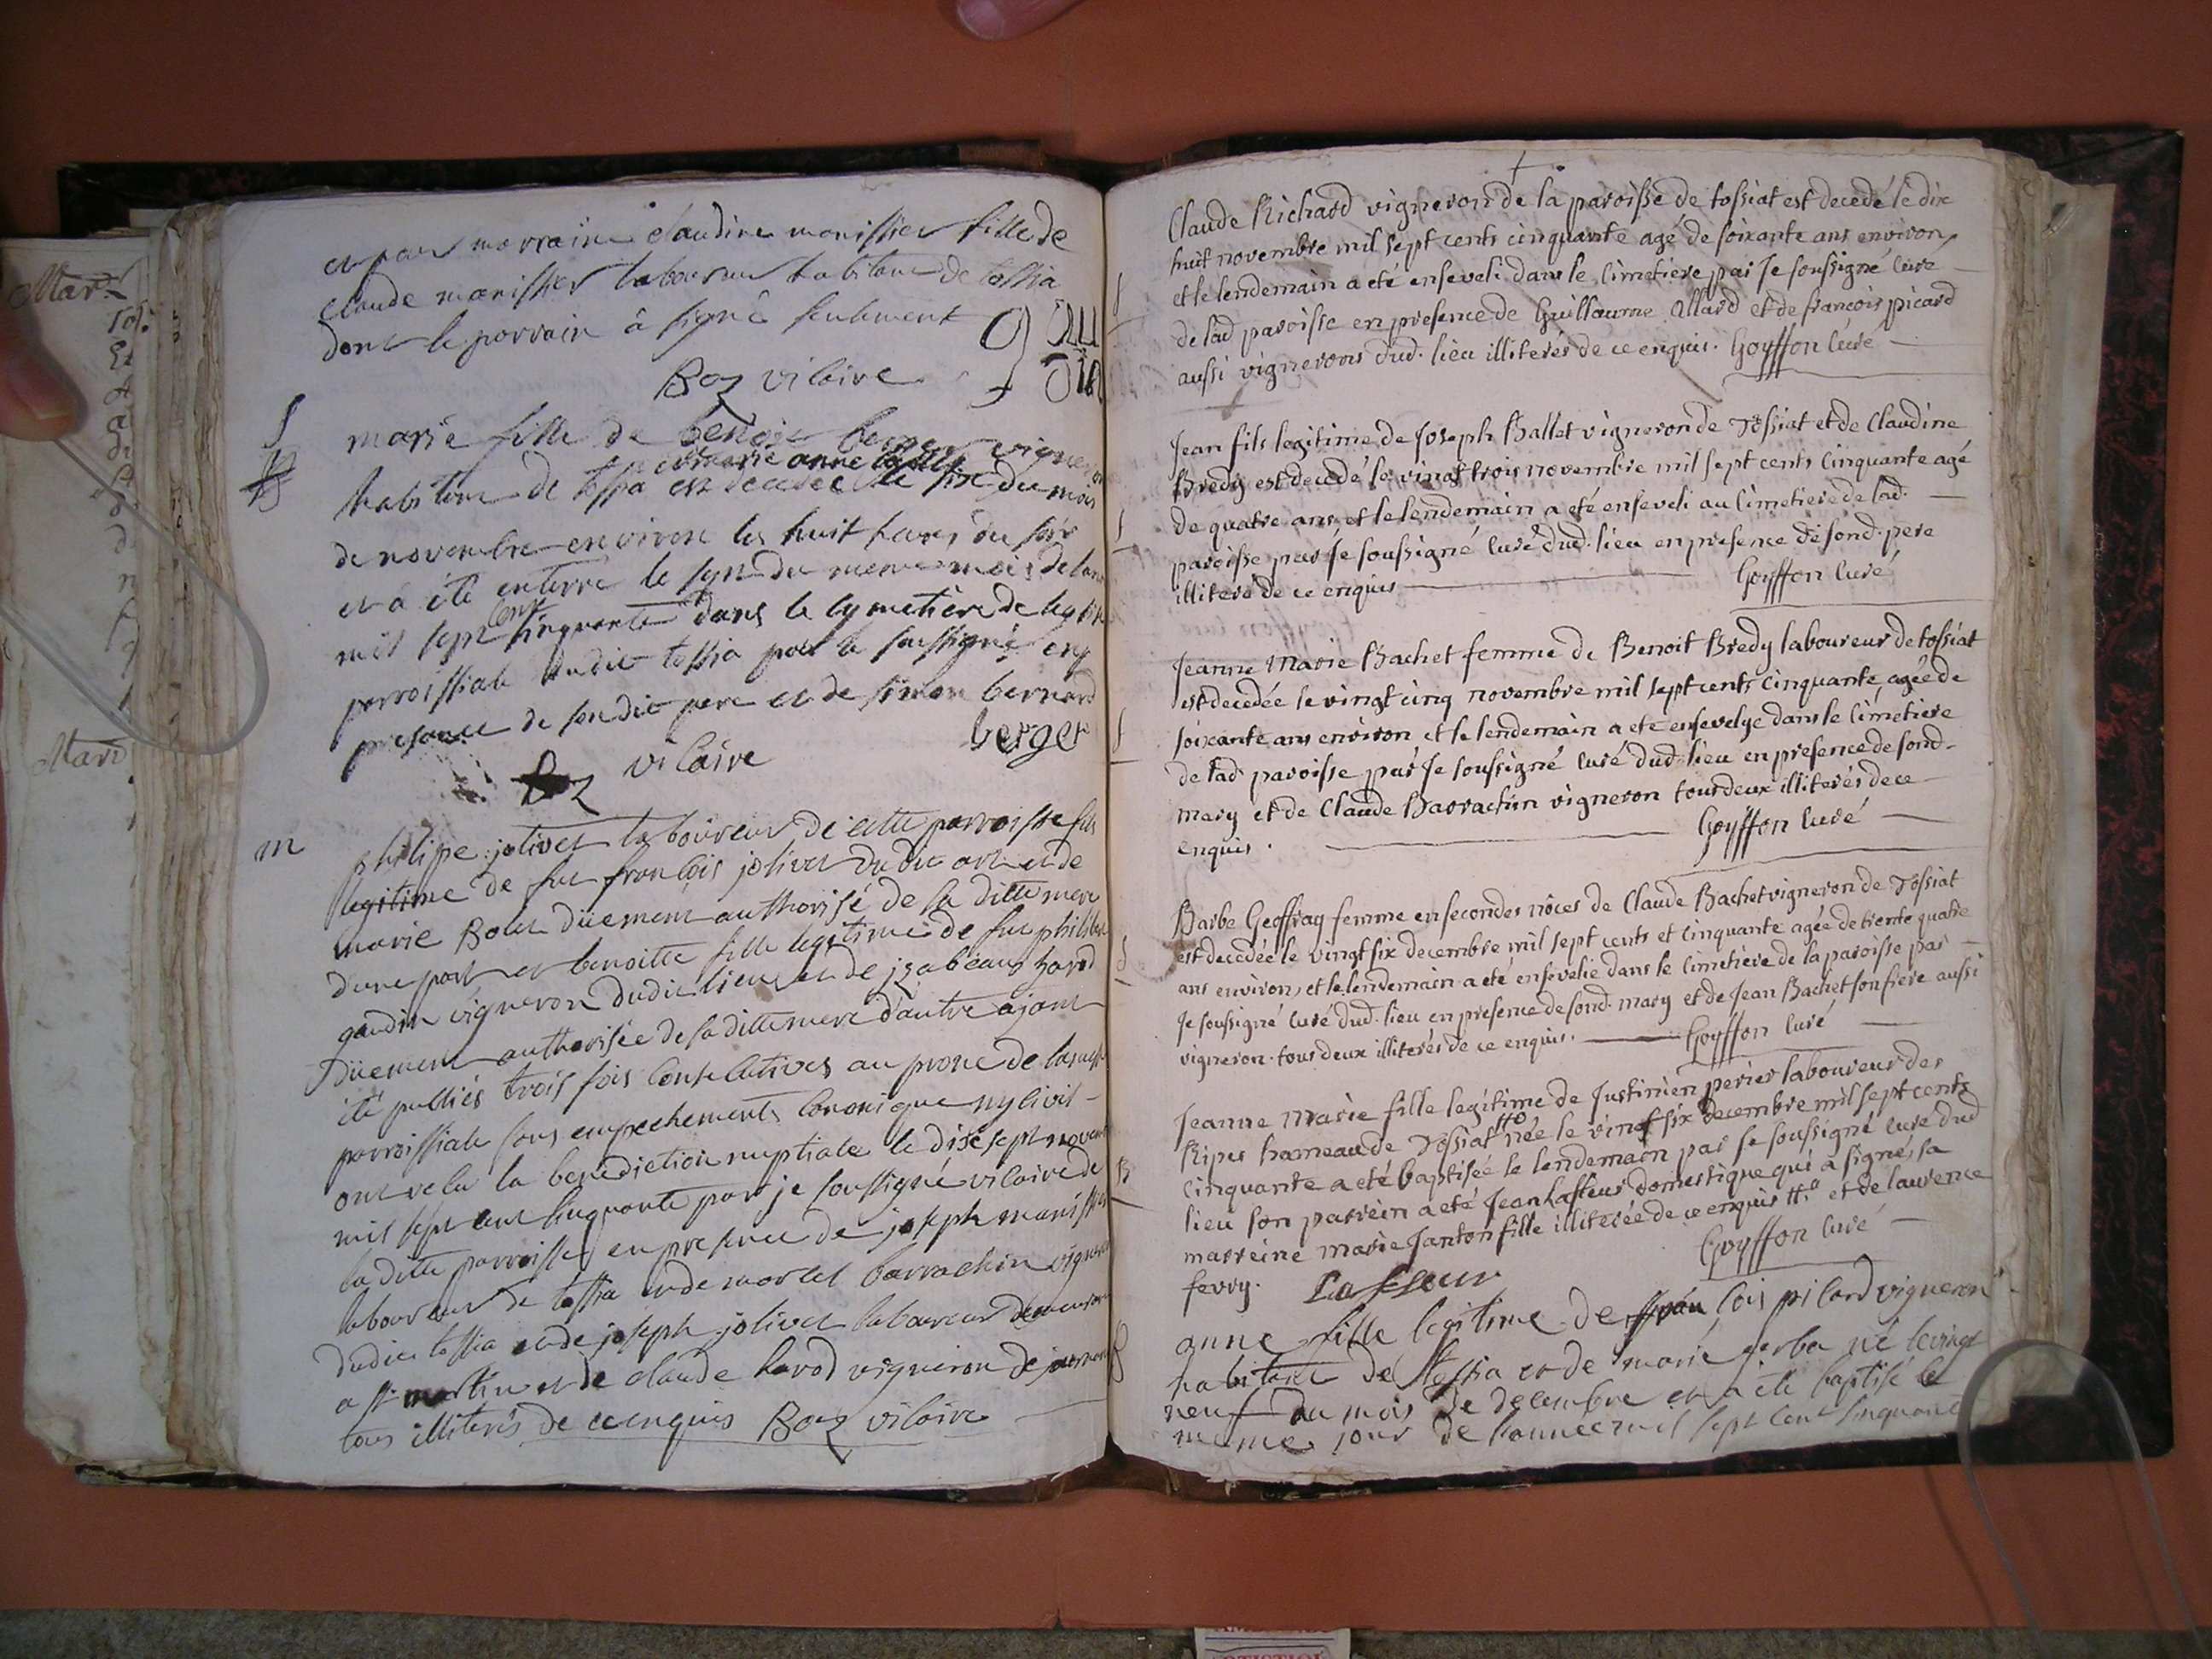 et pour marraine claudine manissier fille de
claude manissier laboureur habitant de tossia
dont le parrain à signé seulement
Boz vicaire
S
marie fille de benoit berger vigneron
et marie anne
habitant de tossia est decedée le six du mois
de novembre environ les huit heures du soir
et a été enterré le sept du meme mois de lan
mil sept cent cinquante dans le cymetière de leglise
parroissiale dudit tossia par le soussigné en
presence de son dit pere et de simon bernard
Boz vicaire berger
m
philipe jolivet laboureur de cette parroisse fils
legitime de fut francois jolivet dudit art et de
marie Bolet düement authorisé de sa ditte mere
dune part et benoitte fille legitime de fut philibert
gaudin vigneron dudit lieu et de jzabeau havod
düement authorisée de sa ditte mere d'autre ajant
été publiés trois fois consecutives au prone de la messe
parroissiale sans empechements canonique ny civil
ont reçu la benediction nuptiale le dix sept novembre
mil sept cent cinquante par je soussigné vicaire de
la ditte parroisse en presence de joseph manissier
laboureur de tossia et de marcel barrachin vigneron
dudit tossia et de joseph jolivet laboureur demeurant
a st martin et de claude havod vigneron de journan
tous illiterés de ce enquis Boz vicaire
Claude Richard vigneron de la paroisse de tossiat est decedé le dix
huit novembre mil sept cents cinquante agé de soixante ans environ
et le lendemain a eté enseveli dans le cimetiere par Je soussigné curé
de lad paroisse en presence de Guillaume Allard et de francois picard
aussi vignerons dud. lieu illiterés de ce enquis. Goyffon curé
Jean fils legitime de Joseph Ballet vigneron de Tossiat et de Claudine
Bredy est decedé le vingt trois novembre mil sept cents cinquante agé
de quatre ans et le lendemain a eté enseveli au cimetiere de lad.
paroisse par Je soussigné curé dud. lieu en presence de sond. pere
illiteré de ce enquis Goyffon curé
Jeanne Marie Bachet femme de Benoit Bredy laboureur de tossiat
est decedée le vingt cinq novembre mil sept cents cinquante agée de
soixante ans environ et le lendemain a eté ensevelye dans le cimetiere
de lad. paroisse par Je soussigné curé dud. lieu en presence de sond.
mary et de Claude Barrachin vigneron tous deux illiterés de ce
enquis. Goyffon curé
Barbe Geoffray femme en secondes nôces de Claude Bachet vigneron de Tossiat
est decedée le vingt six decembre mil sept cents et cinquante agée de trente quatre
ans environ, et le lendemain a eté ensevelie dans le cimetiere de la paroisse par
Je soussigné curé dud. lieu en presence de sond. mary et de Jean Bachet son frere aussi
vigneron. tous deux illiterés de ce enquis. Goyffon curé
Jeanne Marie fille legitime de Justinien perier laboureur des
Ripes hameau de Tossiat née le vingt six decembre mil sept cents
cinquante a eté baptisée le lendemain par Je soussigné curé dud
lieu son parrein a eté Jean Lafleur domestique qui a signé, sa
marreine Marie Janton fille illiterée de ce enquis et de laurence
fevry. Goyffon curé
Lafleur
anne fille legitime de francois picard vigneron
habitant de tossia et de marie gerba né le vingt
neuf du mois de decembre et a ete baptisé le
meme jour de lannee mil sept cent cinquante